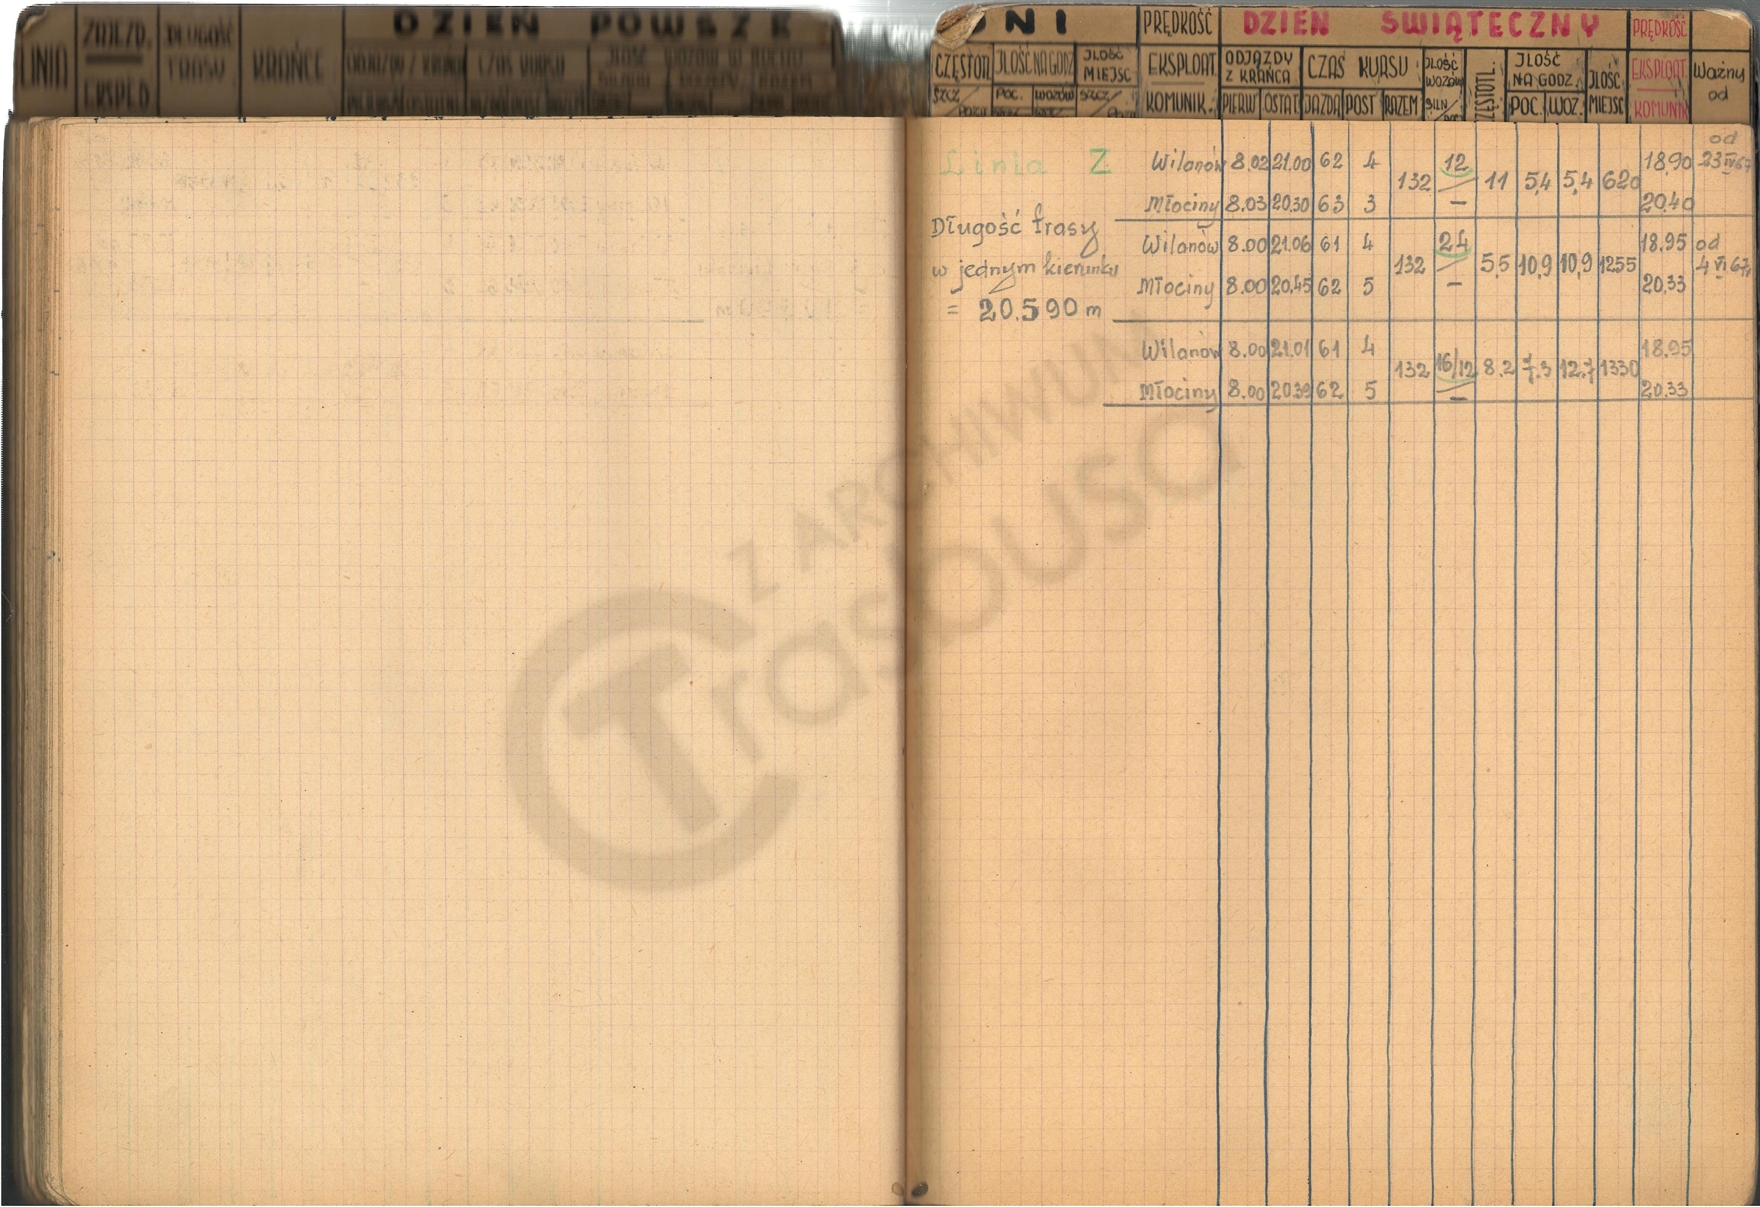 LINIA ZAJEZD. EKSPED. DŁUGOŚĆ TRASY KRAŃCE
DZIEŃ POWSZE
DNI
CZĘSTOTL. JLOŚĆ NA GODZ JLOŚĆ MIEJSC
SZCZ/ POC. WOZÓW SZCZ/
PRĘDKOŚĆ
EKSPLOAT.
KOMUNIK.
DZIEŃ ŚWIĄTECZNY
ODJAZDY Z KRAŃCA CZAS KURSU JLOŚĆ WOZÓW JLOŚĆ NA GODZ. JLOŚĆ MIEJSC
PIERW OSTAT JAZDA POST RAZEM SILN/ POC. WOZ.
PRĘDKOŚĆ
EKSPLOAT
KOMUNIK
Ważny od
Linia Z
Długość trasy
w jednym kierunku
= 20.590 m
Wilanów 8.02 21.00 62 4 12 18,90 od 23 IV 67
132 11 5,4 5,4 620
Młociny 8.03 20.30 63 3 — 20.40
Wilanów 8.00 21.06 61 4 24 18.95 od
132 5,5 10,9 10,9 1255 4 VI 67
Młociny 8.00 20.45 62 5 — 20.33
Wilanów 8.00 21.01 61 4 18.95
132 16/12 8.2 7.3 12.7 1330
Młociny 8.00 20.39 62 5 — 20.33
Z ARCHIWUM
Trasbusa